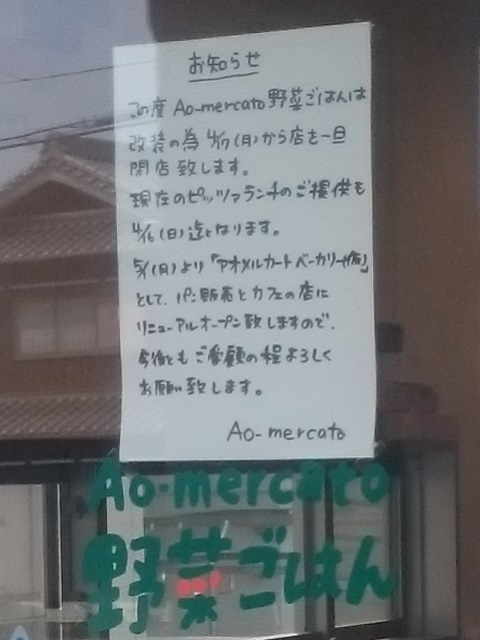 お知らせ
この度 Ao-mercato野菜ごはんは
改装の為 4/17(月)から店を一旦
閉店致します。
現在のピッツァランチのご提供も
4/16(日)迄となります。
5/1(月)より「アオメルカートベーカリー(仮)」
として、パン販売とカフェの店に
リニューアルオープン致しますので、
今後ともご愛顧の程よろしく
お願い致します。
Ao-mercato
Ao-mercato
野菜ごはん